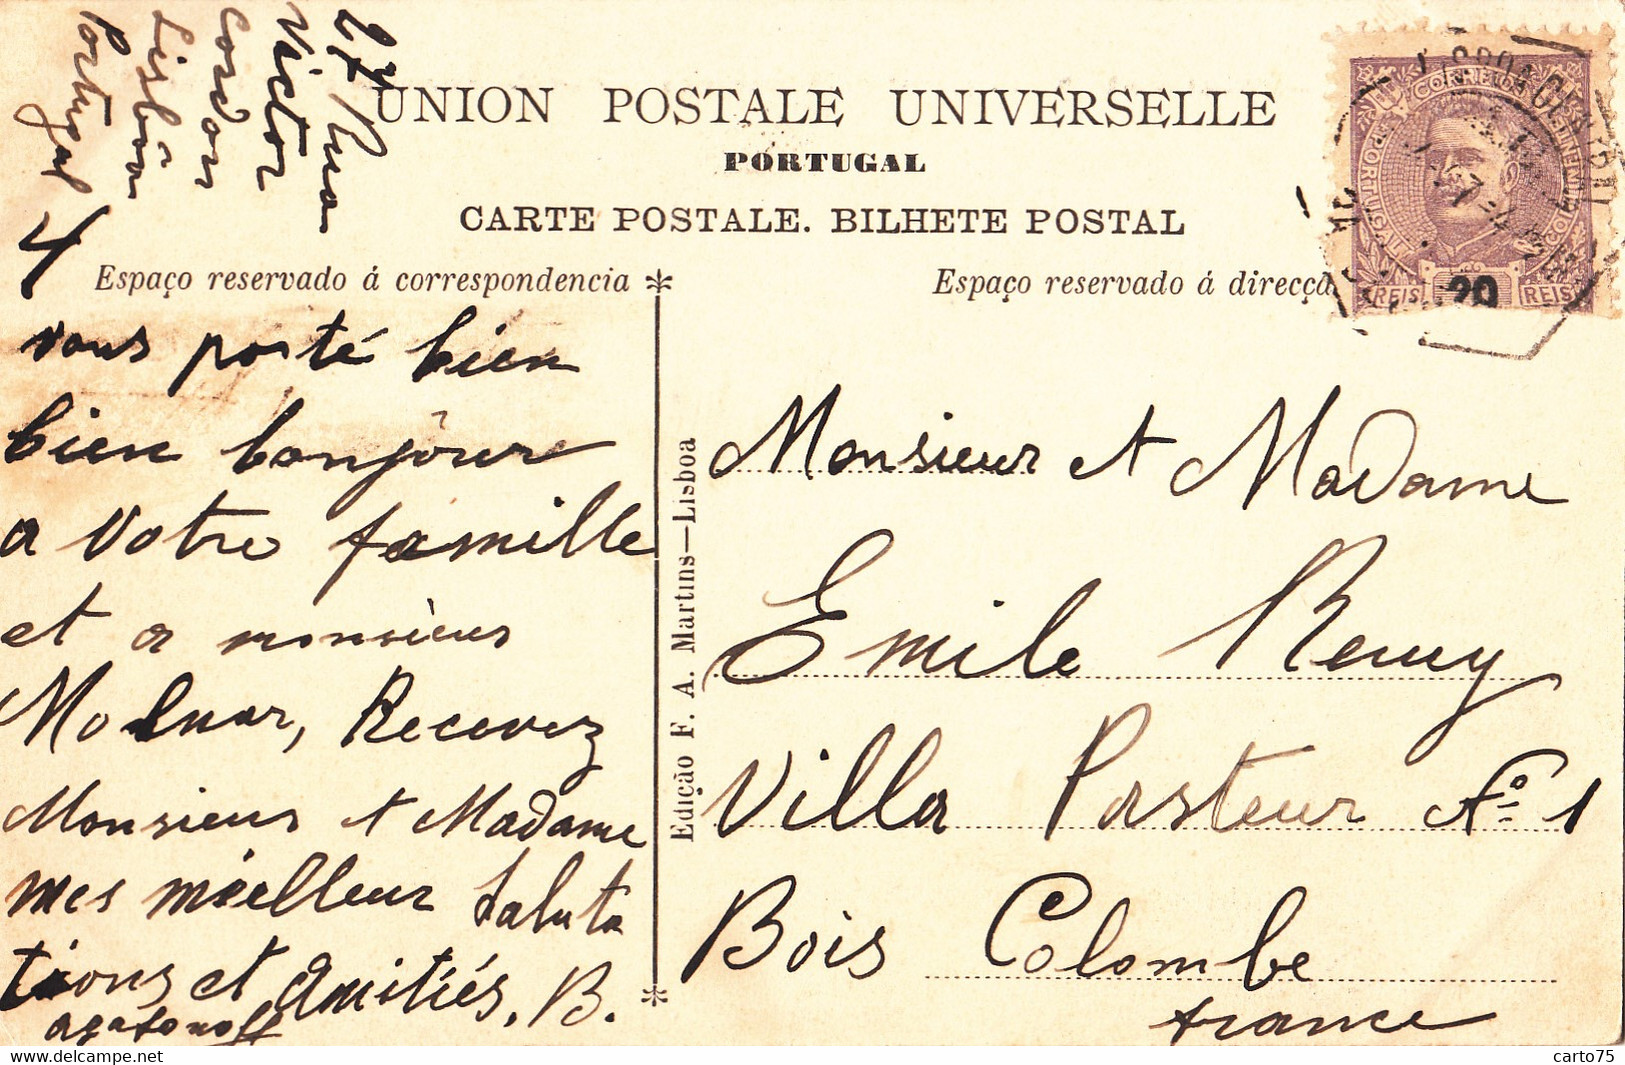 27 Rua
Victor
Cordon
Lisbôa
Portugal
4
UNION POSTALE UNIVERSELLE
PORTUGAL
CARTE POSTALE. BILHETE POSTAL
Espaço reservado á correspondencia
Espaço reservado á direcçã
CORREIOS
PORTUGAL
CONTINENTE
REIS 20 REIS
vous porté bien
bien bonjour
a votre famille
et a monsieur
Molnar, Recevez
Monsieur et Madame
mes meilleur Saluta
tions et Amitiés, B.
agafonoff
Edição F. A. Martins—Lisboa
Monsieur et Madame
Emile Remy
Villa Pasteur No 1
Bois Colombe
france
carto75